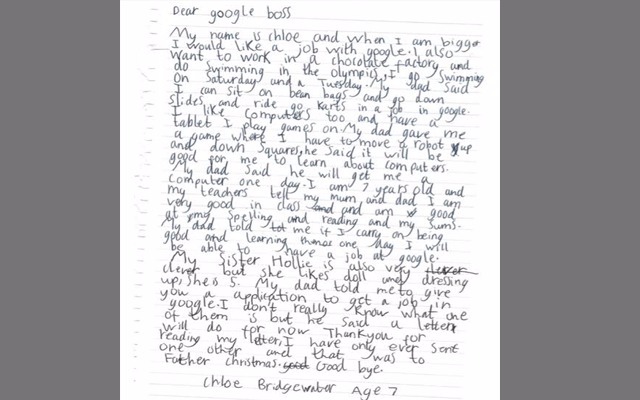 Dear google boss
My name is chloe and when I am bigger
I would like a job with google. I also
want to work in a chocolate factory and
do swimming in the olympics, I go swimming
on Saturday and a Tuesday. My dad said
I can sit on bean bags and go down
slides and ride go karts in a job in google.
I like computers too and have a
tablet I play games on. My dad gave me
a game where I have to move a robot up
and down squares, he said it will be
good for me to learn about computers.
My dad said he will get me a
computer one day. I am 7 years old and
my teachers tell my mum and dad I am
very good in class and and am good
at my spelling and reading and my sums.
My dad told me if I carry on being
good and learning one day I will
be able to have a job at google.
My sister Hollie is also very
clever but she likes doll and dressing
up, she is 5. My dad told me to give
you a application to get a job in
google. I don't really know what one
of them is but he said a letter
will do for now Thankyou for
reading my letter, I have only ever sent
one other and that was to
Father christmas. good Good bye.
Chloe Bridgewater Age 7